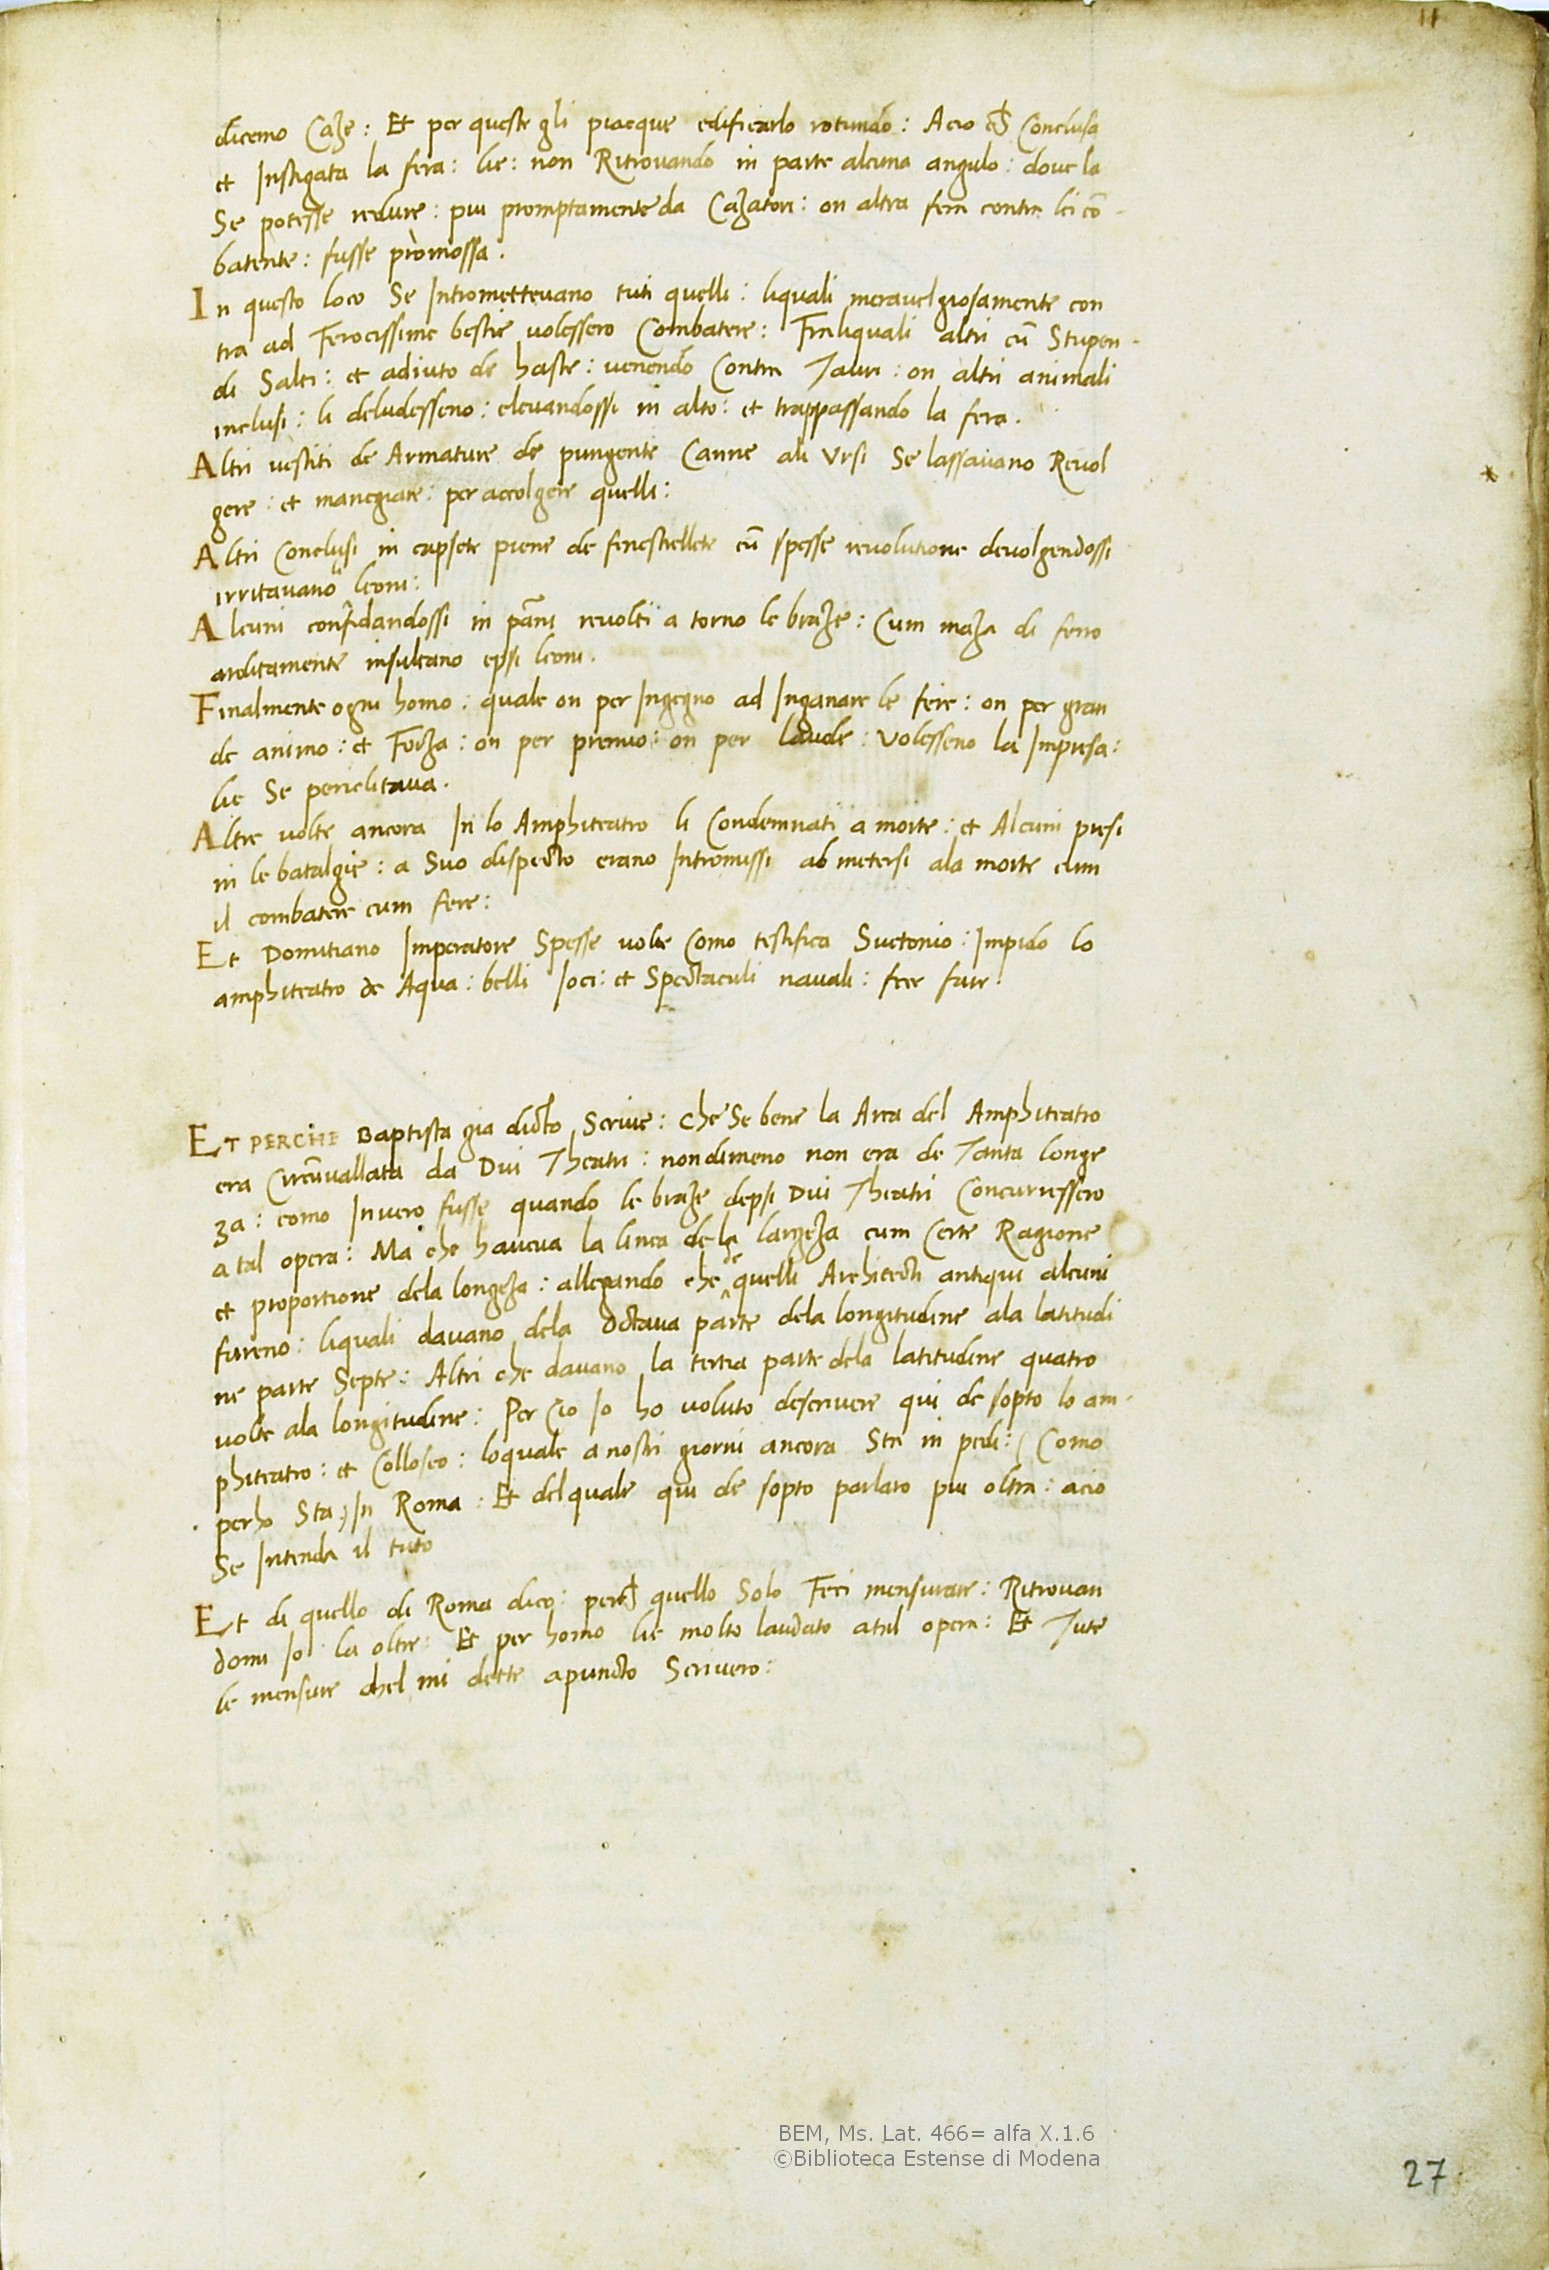 11
dicemo Caze: Et per queste gli piacque edificarlo rotundo: Acio ch̄ Conclusa
et Instigata la fera: lie: non Ritrovando in parte alcuna angulo: dove la
Se potesse redure: piu promptamente da Cazatori: on altra fera contra lei cō-
batente: fusse promossa.
In questo loco Se Intromettevano tuti quelli: liquali meravelgiosamente con
tra ad Ferocissime bestie volessero Combatere: Fra liquali altri cū Stupen-
di Salti: et adiuto de haste: venendo Contra Tauri: on altri animali
inclusi: li deludesseno: elevandossi in alto: et trappassando la fera.
Altri vestiti de Armature de pungente Canne ali Ursi Se lassavano Revol
gere: et manegiare: per accolgere quelli:
Altri Conclusi in capsete piene de fenestrellete cū spesse revolutione devolgendossi
irritavano li leoni:
Alcuni confidandossi in pāni revolti a torno le braze: Cum maza di ferro
arditamente insultano epsi leoni.
Finalmente ogni homo: quale on per Ingegno ad Inganare le fere: on per gran
de animo: et Forza: on per premio: on per laude: volesseno la Impresa:
lie Se periclitava.
Altre volte ancora In lo Amphiteatro li Condemnati a morte: et Alcuni presi
in le batalgie: a Suo dispecto erano Intromissi ab metersi ala morte cum
il combatere cum fere:
Et Domitiano Imperatore Spesse volte Como testifica Suetonio: Impido lo
amphiteatro de Aqua: belli Joci: et Spectaculi navali: fece fare.
ET PERCHE Baptista gia dicto Scrive: che Se bene la Area del Amphiteatro
era Circūvallata da Dui Theatri: nondimeno non era de Tanta longe
za: como Invero fusse quando le braze depsi Dui Theatri Concurressero
a tal opera: Ma che haveva la linea de la largeza cum Certe Ragione
et proportione dela longeza: allegando che de quelli Architecti antiqui alcuni
fureno: liquali davano dela octava parte dela longitudine ala latitudi
ne parte Septe: Altri che davano la tertia parte dela latitudine quatro
volte ala longitudine: Per Cio Jo ho voluto descrivere qui de sopto lo am-
phiteatro: et Colloseo: loquale a nostri giorni ancora Sta in pedi: (Como
perho Sta) In Roma: Et delquale qui de sopto parlaro piu oltra: acio
Se Intenda il tuto
Et di quello di Roma dico: perch̄ quello Solo Feci mensurare: Ritrovan
domi Jo la oltre: Et per homo lie molto laudato atal opera: Et Tute
le mensure chel mi dette apuncto Scrivero:
BEM, Ms. Lat. 466= alfa X.1.6
©Biblioteca Estense di Modena
27